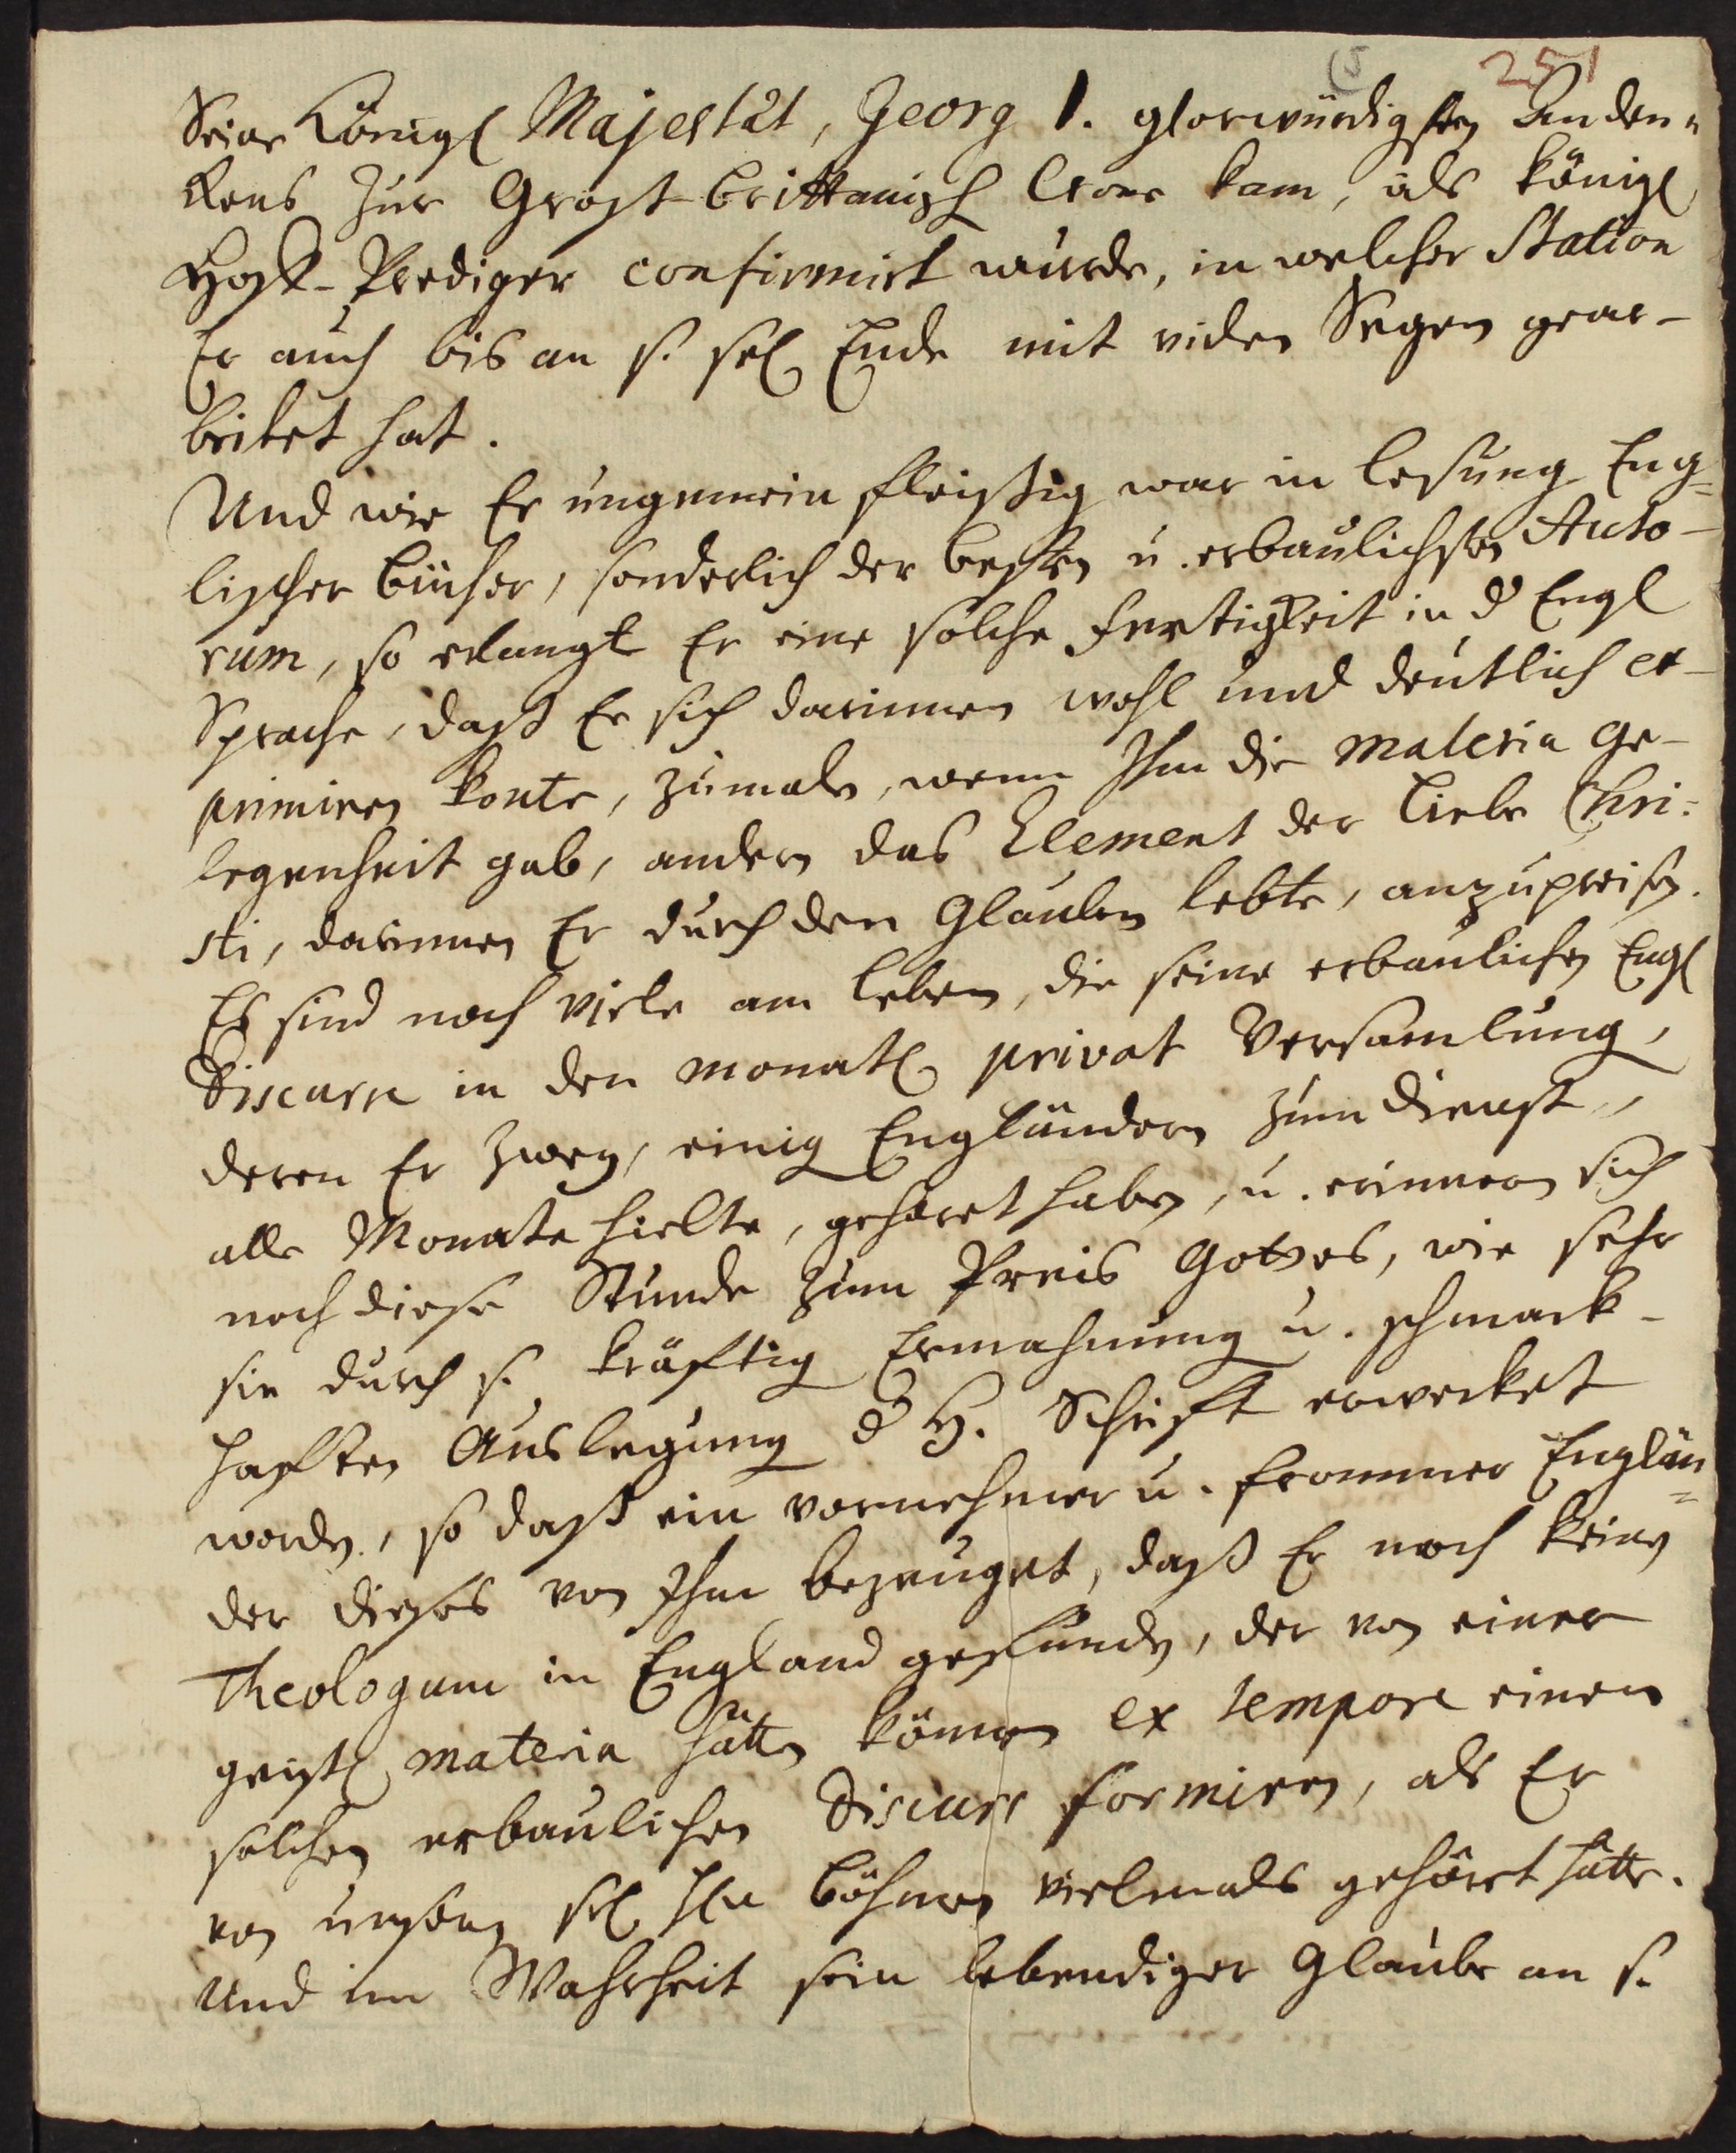 (5 251
Seine Königl Majestät, Georg I. glorwürdigsten Anden-
kens zur Gross-brittanisch Crone kam, als königl
Hoff-Prediger confirmirt wurde, in welcher Station
Er auch bis an s. sel Ende mit vielen Segen gear-
beitet hat.
Und wie Er ungemein fleißig war in lesung Eng-
lischer bücher, sonderlich der besten u. erbaulichsten Auto-
rum, so erlangt Er eine solche fertigkeit in d Engl
Sprache, daß Er sich darinnen wohl und deutlich ex-
primiren konte, zumalen, wenn Ihm die materia ge-
legenheit gab, andern das Element der liebe Chri-
sti, darinnen Er durch den Glauben lebte, anzupreisen.
Es sind noch viele am leben, die seine erbaulichen Engl
Discurse in den monatl privat Versamlung,
deren Er zwey, einig Engländern zum dienst,
alle Monate hielte, gehöret haben, u. erinnern sich
noch diese Stunde zum Preis Gottes, wie sehr
sie durch s. kräftig Ermahnung u. schmack-
haften Auslegung d H. Schrift erwecket
worden, so daß ein vornehmer u. frommer Englän-
der dieses von Ihm bezeuget, daß Er noch keinen
Theologum in England gefunden, der von einer
geistl materia hätte können ex tempore einen
solchen erbaulichen Discurs formiren, als Er
von unsern sel Hn Böhmen vielmals gehöret hätte.
Und in Wahrheit sein lebendiger Glaube an s.